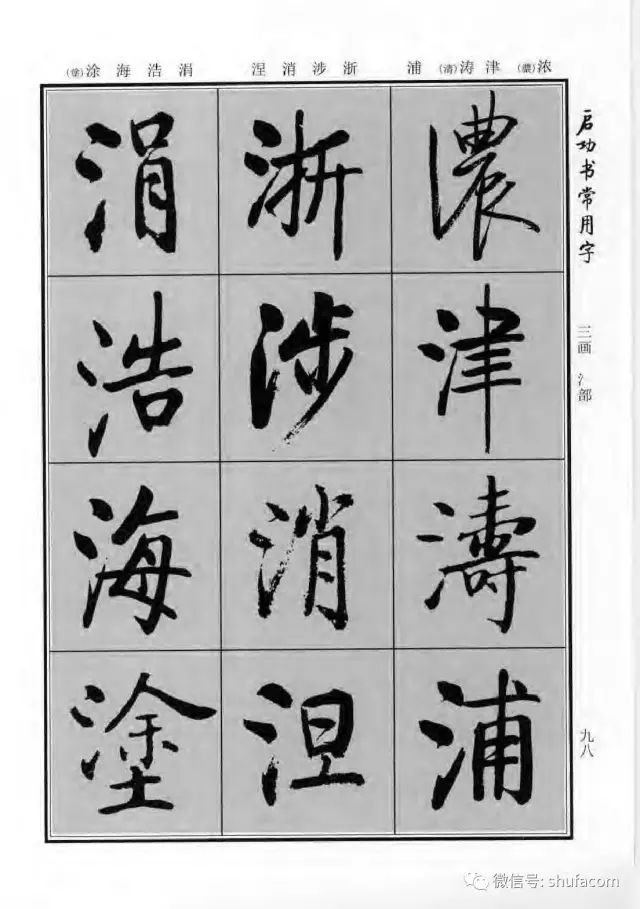 浓(濃)津涛(濤)浦
浙涉消涅
涓浩海涂(塗)
启功书常用字
三画 氵部
九八
濃 津 濤 浦
浙 涉 消 涅
涓 浩 海 塗
微信号: shufacom